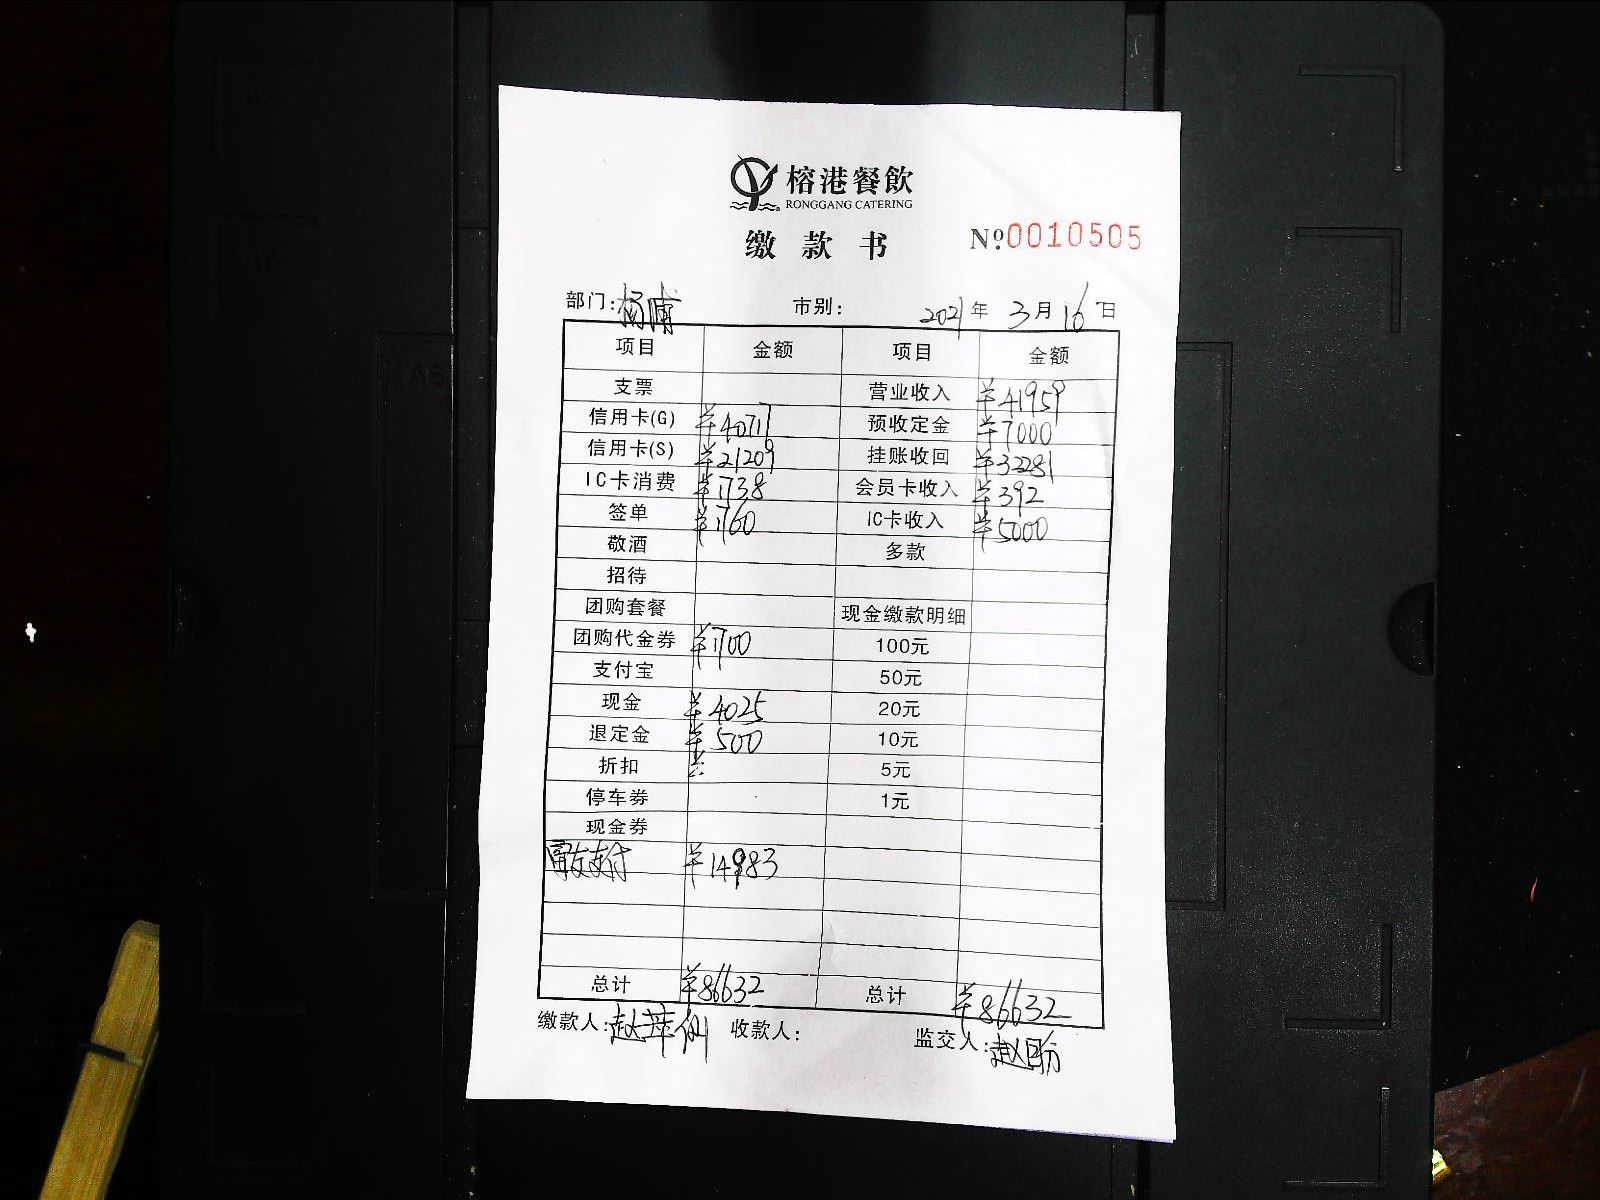 榕港餐飲
RONGGANG CATERING
缴款书
№0010505
部门:杨浦 市别: 2021年3月16日
项目 金额 项目 金额
支票 营业收入 ¥41959
信用卡(G) ¥40717 预收定金 ¥7000
信用卡(S) ¥21209 挂账收回 ¥32281
IC卡消费 ¥1738 会员卡收入 ¥392
签单 ¥1760 IC卡收入 ¥5000
敬酒 多款
招待
团购套餐 现金缴款明细
团购代金券 ¥1700 100元
支付宝 50元
现金 ¥4025 20元
退定金 ¥500 10元
折扣 5元
停车券 1元
现金券
支付 ¥14983
总计 ¥86632 总计 ¥86632
缴款人:赵萍仙 收款人: 监交人:赵盼